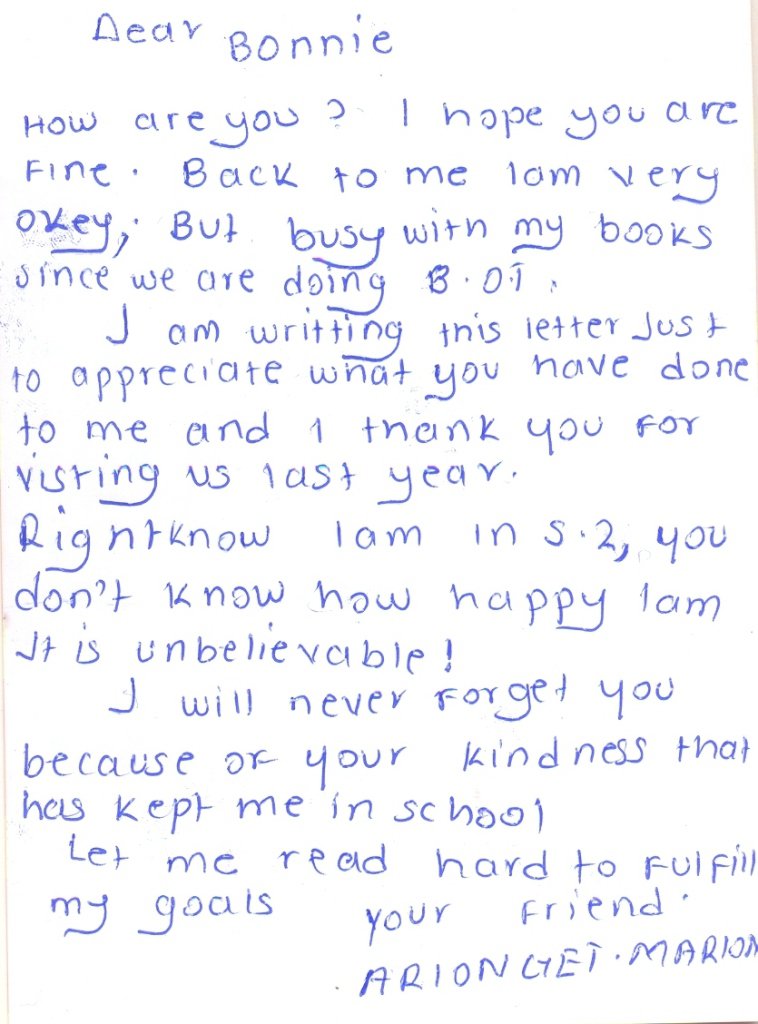 Dear Bonnie
How are you? I hope you are
Fine. Back to me Iam very
okey, But busy with my books
since we are doing B.O.T.
I am writting this letter Just
to appreciate what you have done
to me and I thank you For
visting us last year.
Rightknow Iam in S.2, you
don't know how happy Iam
It is unbelievable!
I will never Forget you
because oF your kindness that
has kept me in school
Let me read hard to FulFill
my goals your Friend.
ARIONGET.MARION